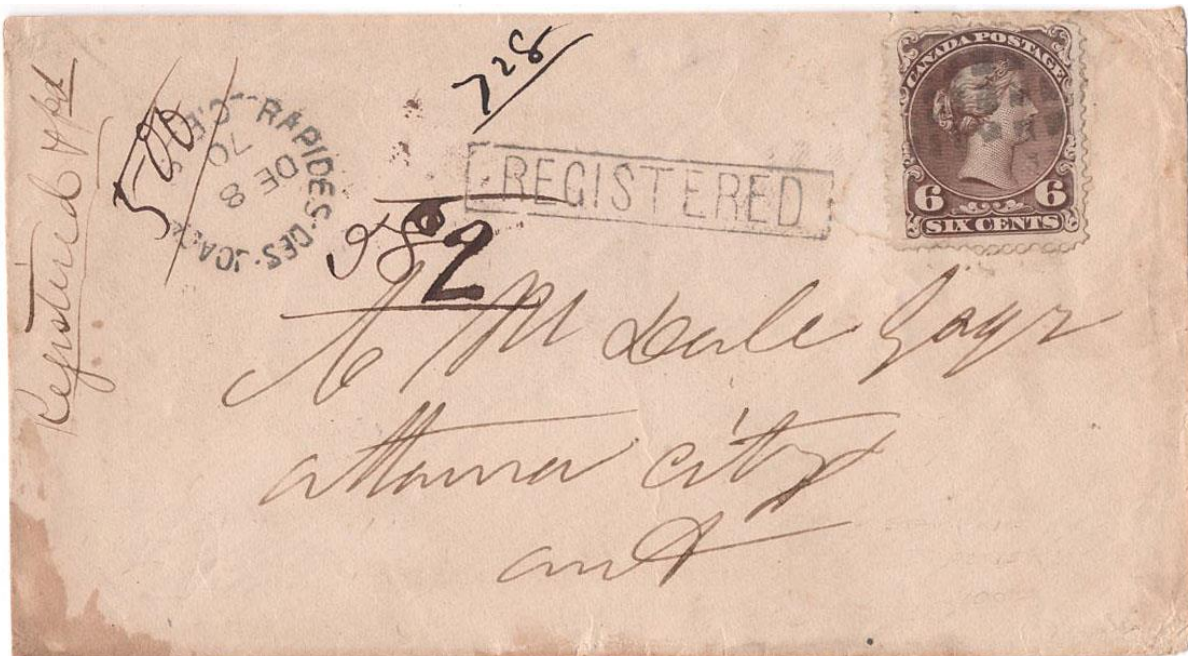 Registered
500
RAPIDES·DES·JOAX C.E.
DE 8
70
728
REGISTERED
582
CANADA POSTAGE
6 6
SIX CENTS
A M Esqr
attawa city
ont